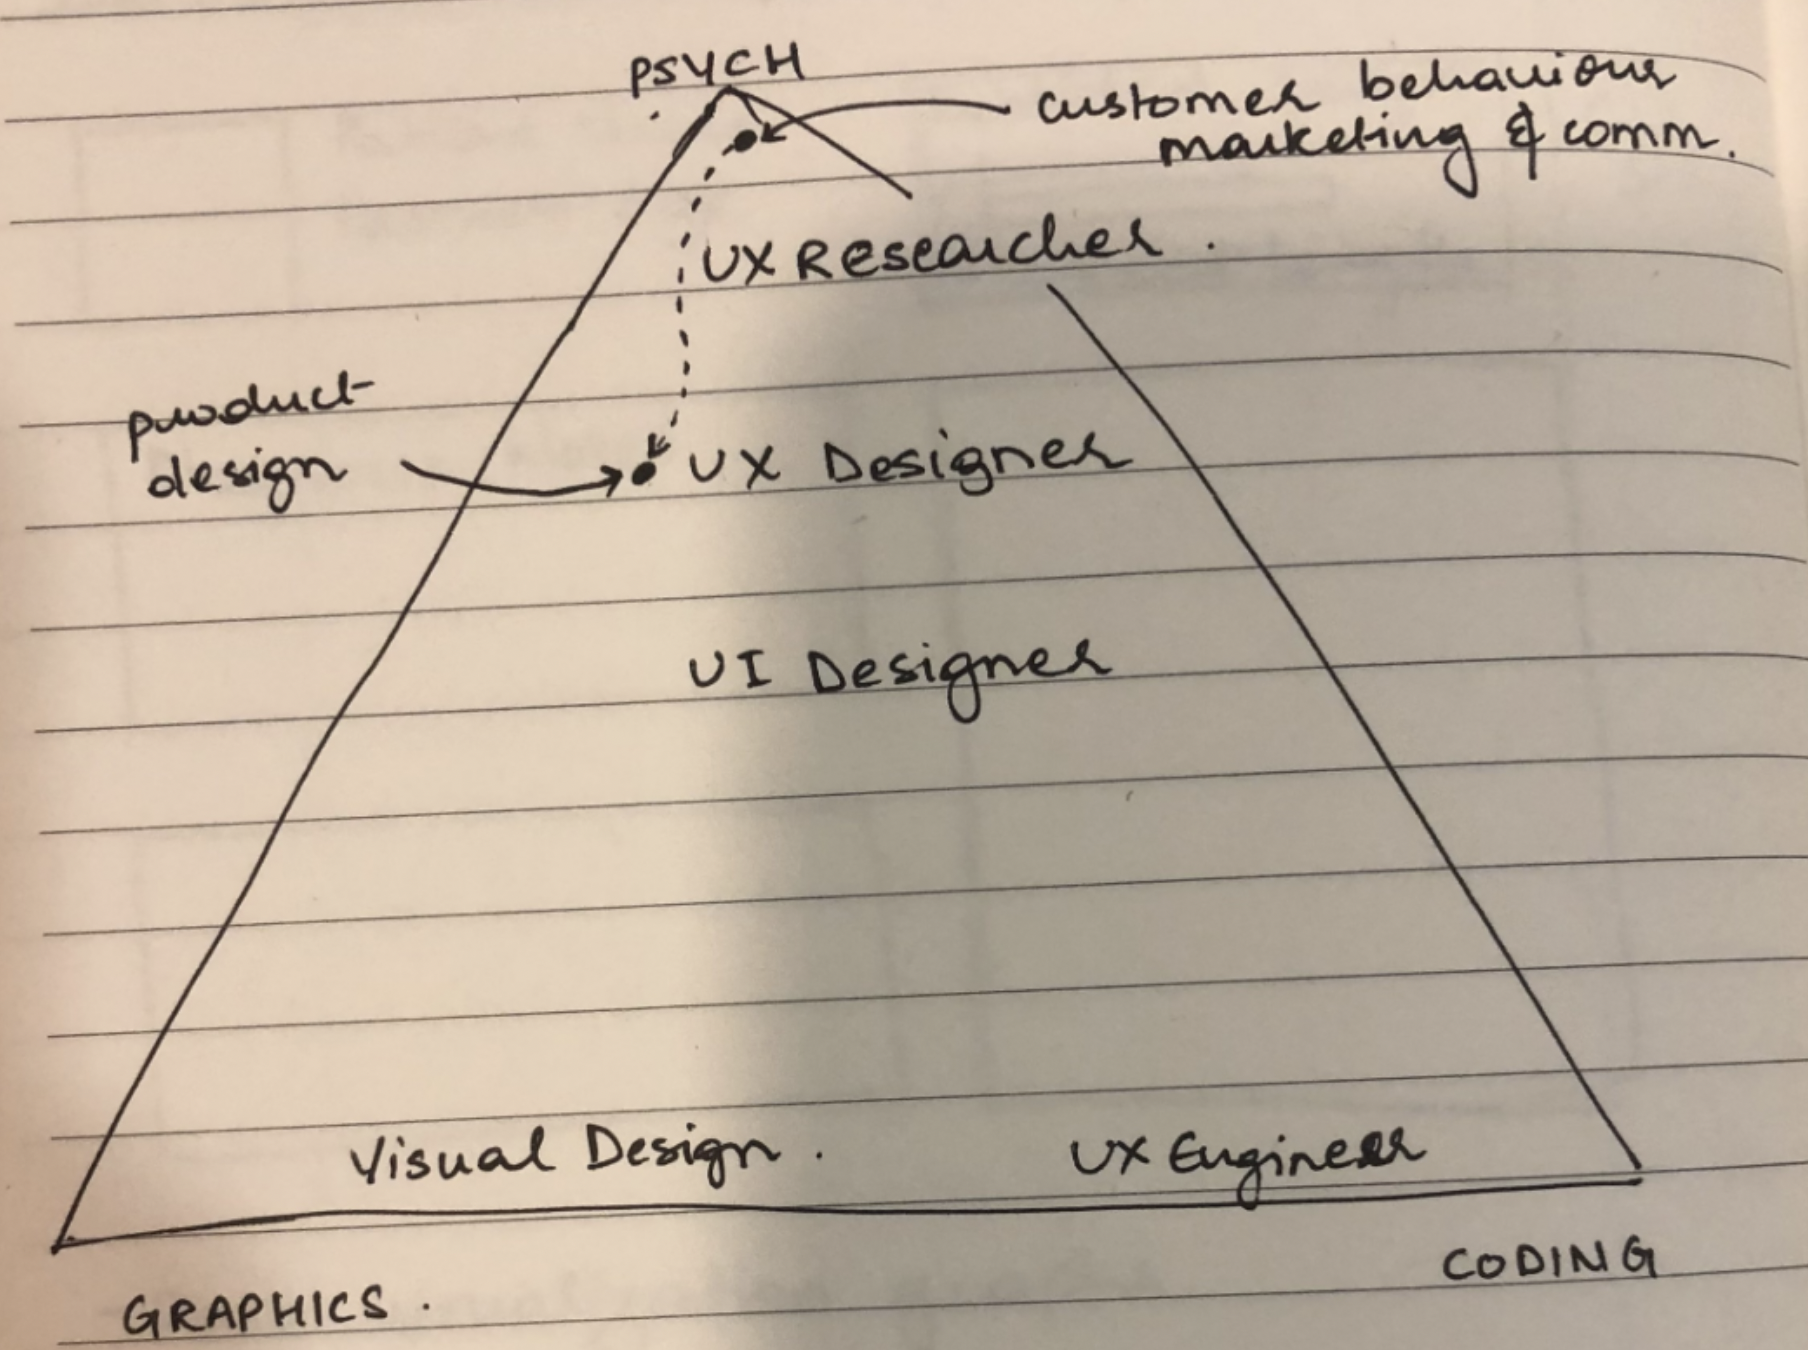 PSYCH
customer behaviour
marketing & comm.
UX Researcher .
product
design
UX Designer
UI Designer
Visual Design .
UX Engineer
CODING
GRAPHICS .